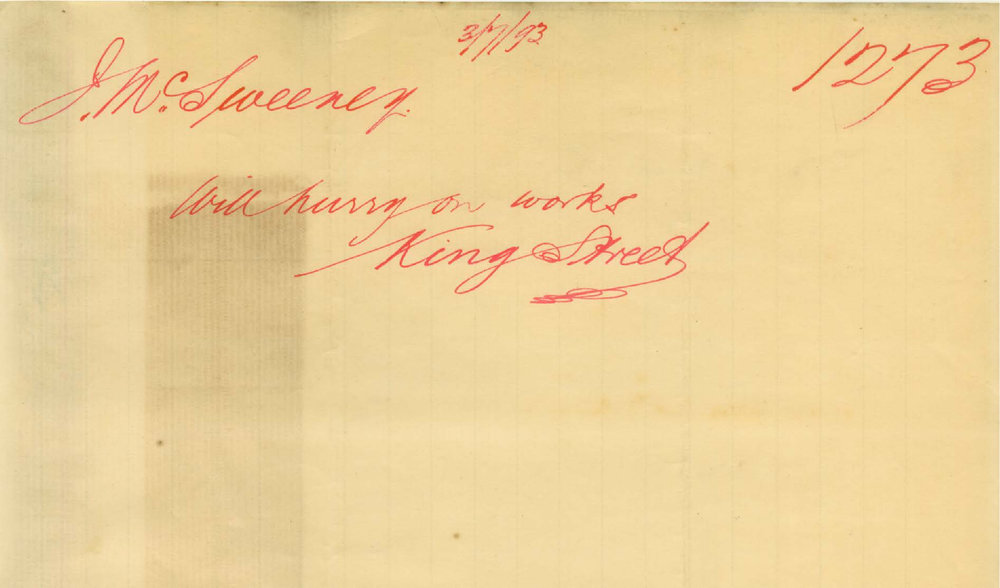 3/7/93
1273
J. McSweeney.
Will hurry on works
King Street